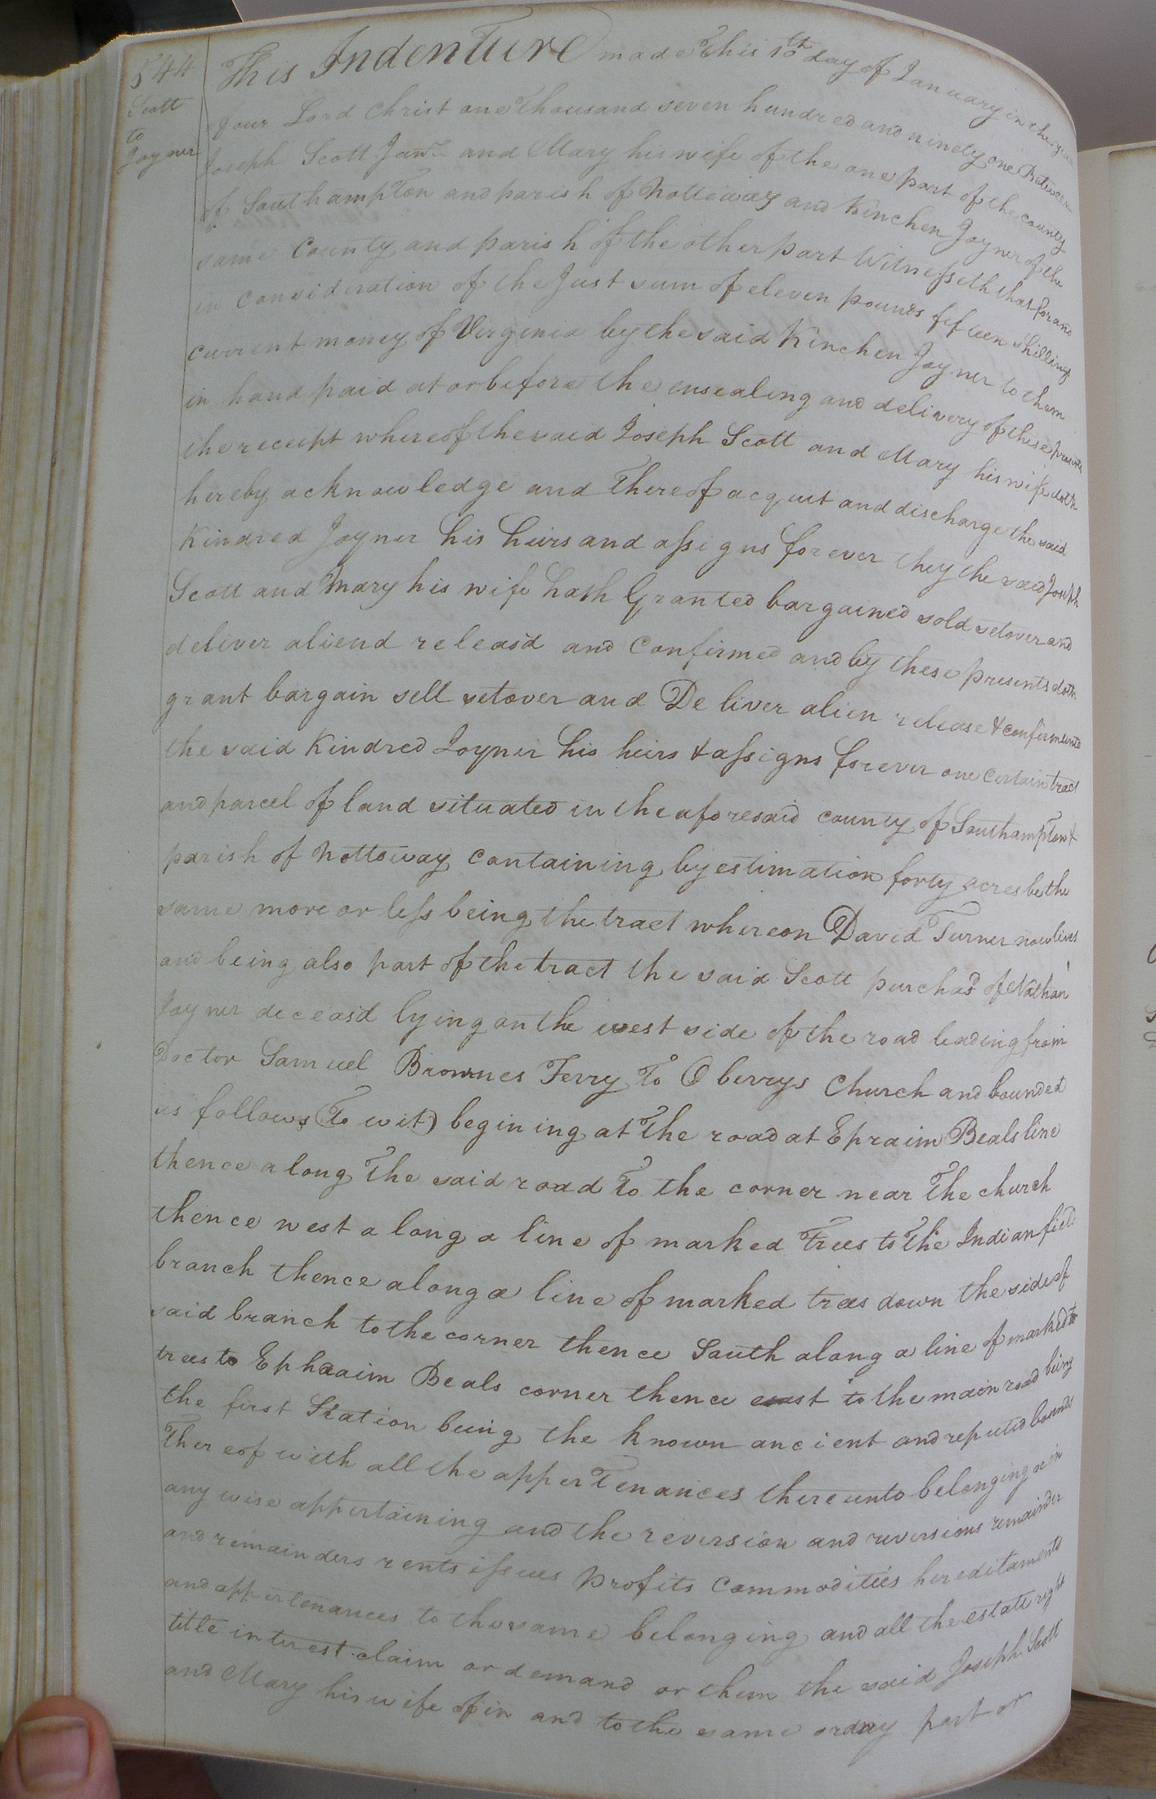 544
Scott
to
Joyner
This Indenture made this day of January in the year
of our Lord Christ one Thousand seven hundred and ninety one Between
Joseph Scott Junr and Mary his wife of the one part of the county
of Southampton and parish of Nottoway and Kinchen Joyner of the
same County and parish of the other part Witnesseth that for and
in consideration of the Just sum of eleven pounds fifteen shillings
current money of Virginia by the said Kinchen Joyner to them
in hand paid at or before the ensealing and delivery of these presents
the receipt whereof the said Joseph Scott and Mary his wife doth
hereby acknowledge and Thereof acquit and discharge the said
Kindred Joyner his heirs and assigns forever they the said Joseph
Scott and Mary his wife hath Granted bargained sold setover and
deliver aliend releasd and Confirmed and by these presents doth
grant bargain sell setover and De liver alien release & confirm unto
the said Kindred Joyner his heirs & assigns forever one certain tract
and parcel of land situated in the aforesaid county of Southampton &
parish of Nottoway containing by estimation forty acres be the
same more or less being the tract whereon David Turner now lives
and being also part of the tract the said Scott purchasd of Nathan
Joyner deceasd lying on the west side of the road leading from
Doctor Samuel Brownes Ferry To Oberrys Church and bounded
as follows (To wit) begining at The road at Epraim Beals line
thence along The said road To the corner near The church
thence west a long a line of marked Trees to The Indian field
branch thence along a line of marked trees down the side of
said branch to the corner thence South along a line of marked
trees to Ephraim Beals corner thence east to the main road being
the first Station being the known ancient and reputed bounds
Thereof with all the apperTenances thereunto belonging or in
any wise appertaining and the reversion and reversions remainder
and remainders rents issues profits commodities hereditaments
and appertenances to the same belonging and all the estate right
title interest claim or demand or them the said Joseph Scott
and Mary his wife of in and to the same or any part or